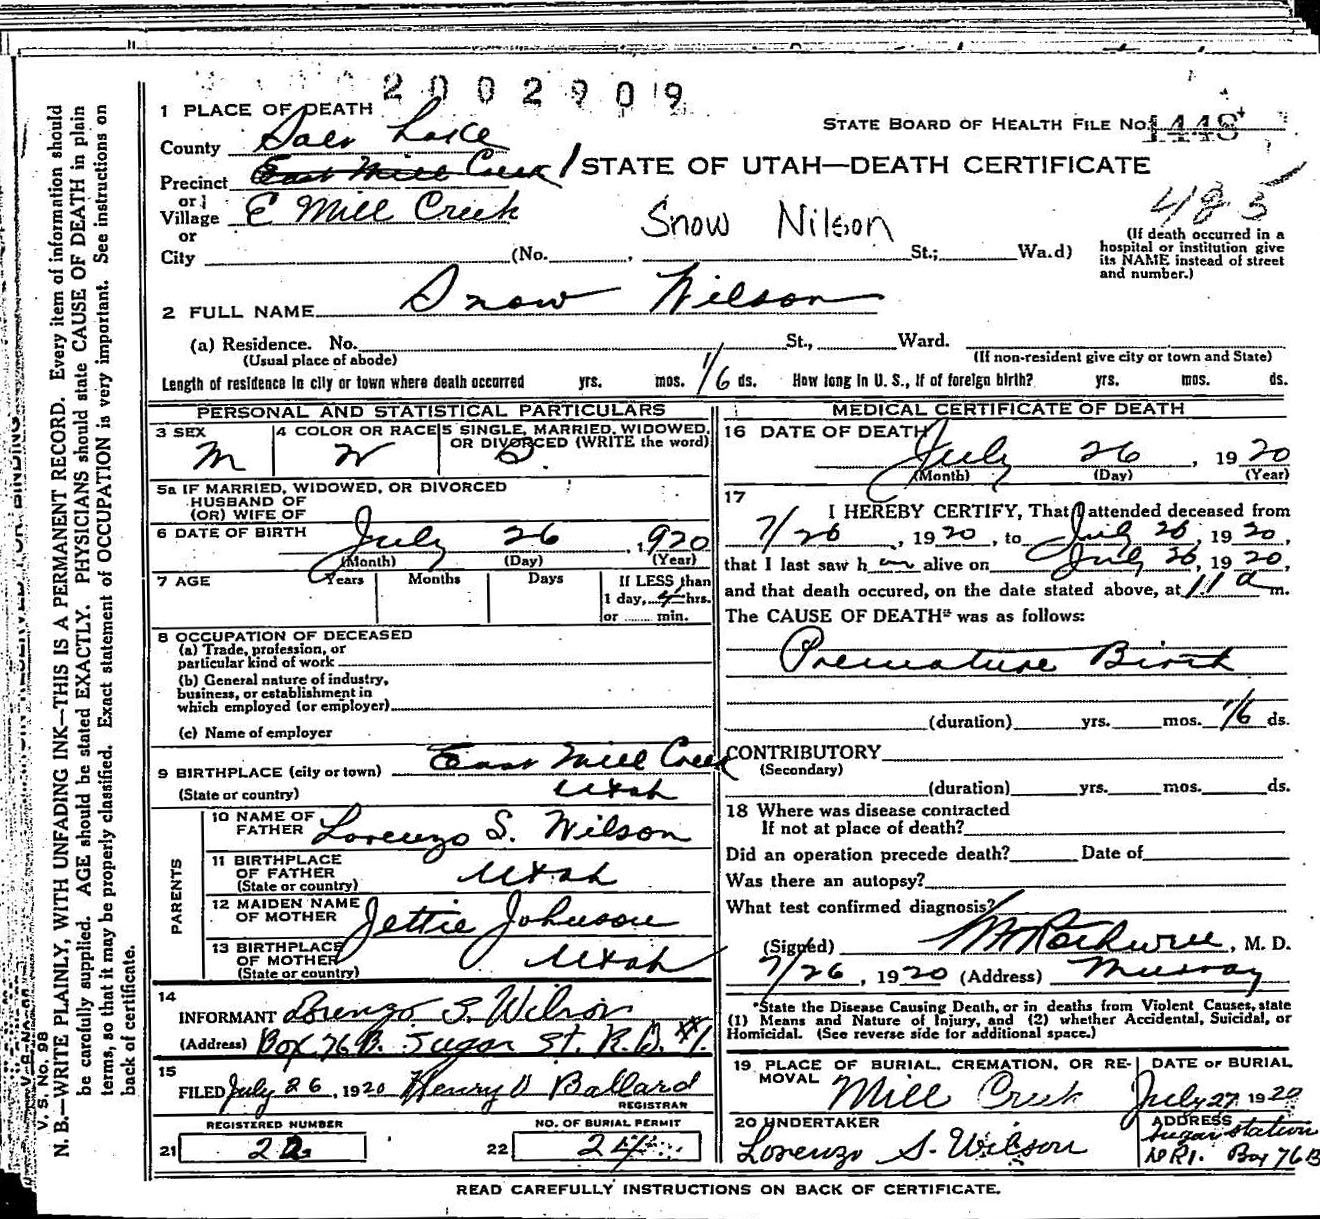 2002909
1 PLACE OF DEATH
STATE BOARD OF HEALTH FILE No. 1448
County Salt Lake
STATE OF UTAH—DEATH CERTIFICATE
Precinct East Mill Creek
or
Village E Mill Creek
Snow Nilson
485
or
City (No. , St.; Wa.d)
(If death occurred in a
hospital or institution give
its NAME instead of street
and number.)
2 FULL NAME Snow Wilson
(a) Residence. No. St., Ward.
(Usual place of abode)
(If non-resident give city or town and State)
Length of residence in city or town where death occurred yrs. mos. 1/6 ds. How long in U. S., if of foreign birth? yrs. mos. ds.
PERSONAL AND STATISTICAL PARTICULARS
3 SEX
M
4 COLOR OR RACE
W
5 SINGLE, MARRIED, WIDOWED,
OR DIVORCED (WRITE the word)
S.
5a IF MARRIED, WIDOWED, OR DIVORCED
HUSBAND OF
(OR) WIFE OF
6 DATE OF BIRTH July 26, 1920
(Month) (Day) (Year)
7 AGE Years Months Days
If LESS than
1 day, 4 hrs.
or ...... min.
8 OCCUPATION OF DECEASED
(a) Trade, profession, or
particular kind of work
(b) General nature of industry,
business, or establishment in
which employed (or employer)
(c) Name of employer
9 BIRTHPLACE (city or town) East Mill Creek
(State or country) Utah
PARENTS
10 NAME OF
FATHER Lorenzo S. Wilson
11 BIRTHPLACE
OF FATHER
(State or country) Utah
12 MAIDEN NAME
OF MOTHER Jettie Johnson
13 BIRTHPLACE
OF MOTHER
(State or country) Utah
14
INFORMANT Lorenzo S. Wilson
(Address) Box 76 B. Sugar St. R.D. #1.
15
FILED July 26, 1920 Henry D Ballard
REGISTRAR
REGISTERED NUMBER
21 22
NO. OF BURIAL PERMIT
22 24
MEDICAL CERTIFICATE OF DEATH
16 DATE OF DEATH
July 26, 1920
(Month) (Day) (Year)
17
I HEREBY CERTIFY, That I attended deceased from
7/26, 1920, to July 26, 1920,
that I last saw h im alive on July 26, 1920,
and that death occured, on the date stated above, at 11 a m.
The CAUSE OF DEATH* was as follows:
Premature Birth
(duration) yrs. mos. 1/6 ds.
CONTRIBUTORY
(Secondary)
(duration) yrs. mos. ds.
18 Where was disease contracted
If not at place of death?
Did an operation precede death? Date of
Was there an autopsy?
What test confirmed diagnosis?
(Signed) , M. D.
7/26, 1920 (Address) Murray
*State the Disease Causing Death, or in deaths from Violent Causes, state
(1) Means and Nature of Injury, and (2) whether Accidental, Suicidal, or
Homicidal. (See reverse side for additional space.)
19 PLACE OF BURIAL, CREMATION, OR RE-
MOVAL
Mill Creek
DATE OF BURIAL
July 27 1920
20 UNDERTAKER
Lorenzo S. Wilson
ADDRESS
Sugar Station
R1. Box 76B
READ CAREFULLY INSTRUCTIONS ON BACK OF CERTIFICATE.
V. S. No. 98
N. B.—WRITE PLAINLY, WITH UNFADING INK—THIS IS A PERMANENT RECORD. Every item of information should
be carefully supplied. AGE should be stated EXACTLY. PHYSICIANS should state CAUSE OF DEATH in plain
terms, so that it may be properly classified. Exact statement of OCCUPATION is very important. See instructions on
back of certificate.